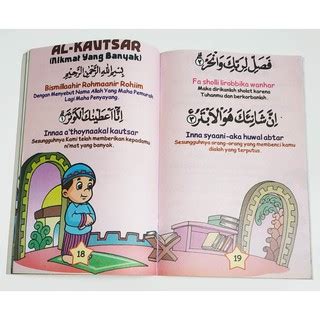 AL-KAUTSAR
(Nikmat Yang Banyak)
بِسْمِ اللّٰهِ الرَّحْمٰنِ الرَّحِيْمِ
Bismillaahir Rohmaanir Rohiim
Dengan Menyebut Nama Allah Yang Maha Pemurah
Lagi Maha Penyayang.
اِنَّآ اَعْطَيْنٰكَ الْكَوْثَرَ ﴿١﴾
Innaa a'thoynaakal kautsar
Sesungguhnya Kami telah memberikan kepadamu
ni'mat yang banyak.
18
فَصَلِّ لِرَبِّكَ وَانْحَرْ ﴿٢﴾
Fa sholli lirobbika wanhar
Maka dirikanlah sholat karena
Tuhanmu dan berkorbanlah.
اِنَّ شَانِئَكَ هُوَ الْاَبْتَرُ ﴿٣﴾
Inna syaani-aka huwal abtar
Sesungguhnya orang-orang yang membenci kamu
dialah yang terputus.
19